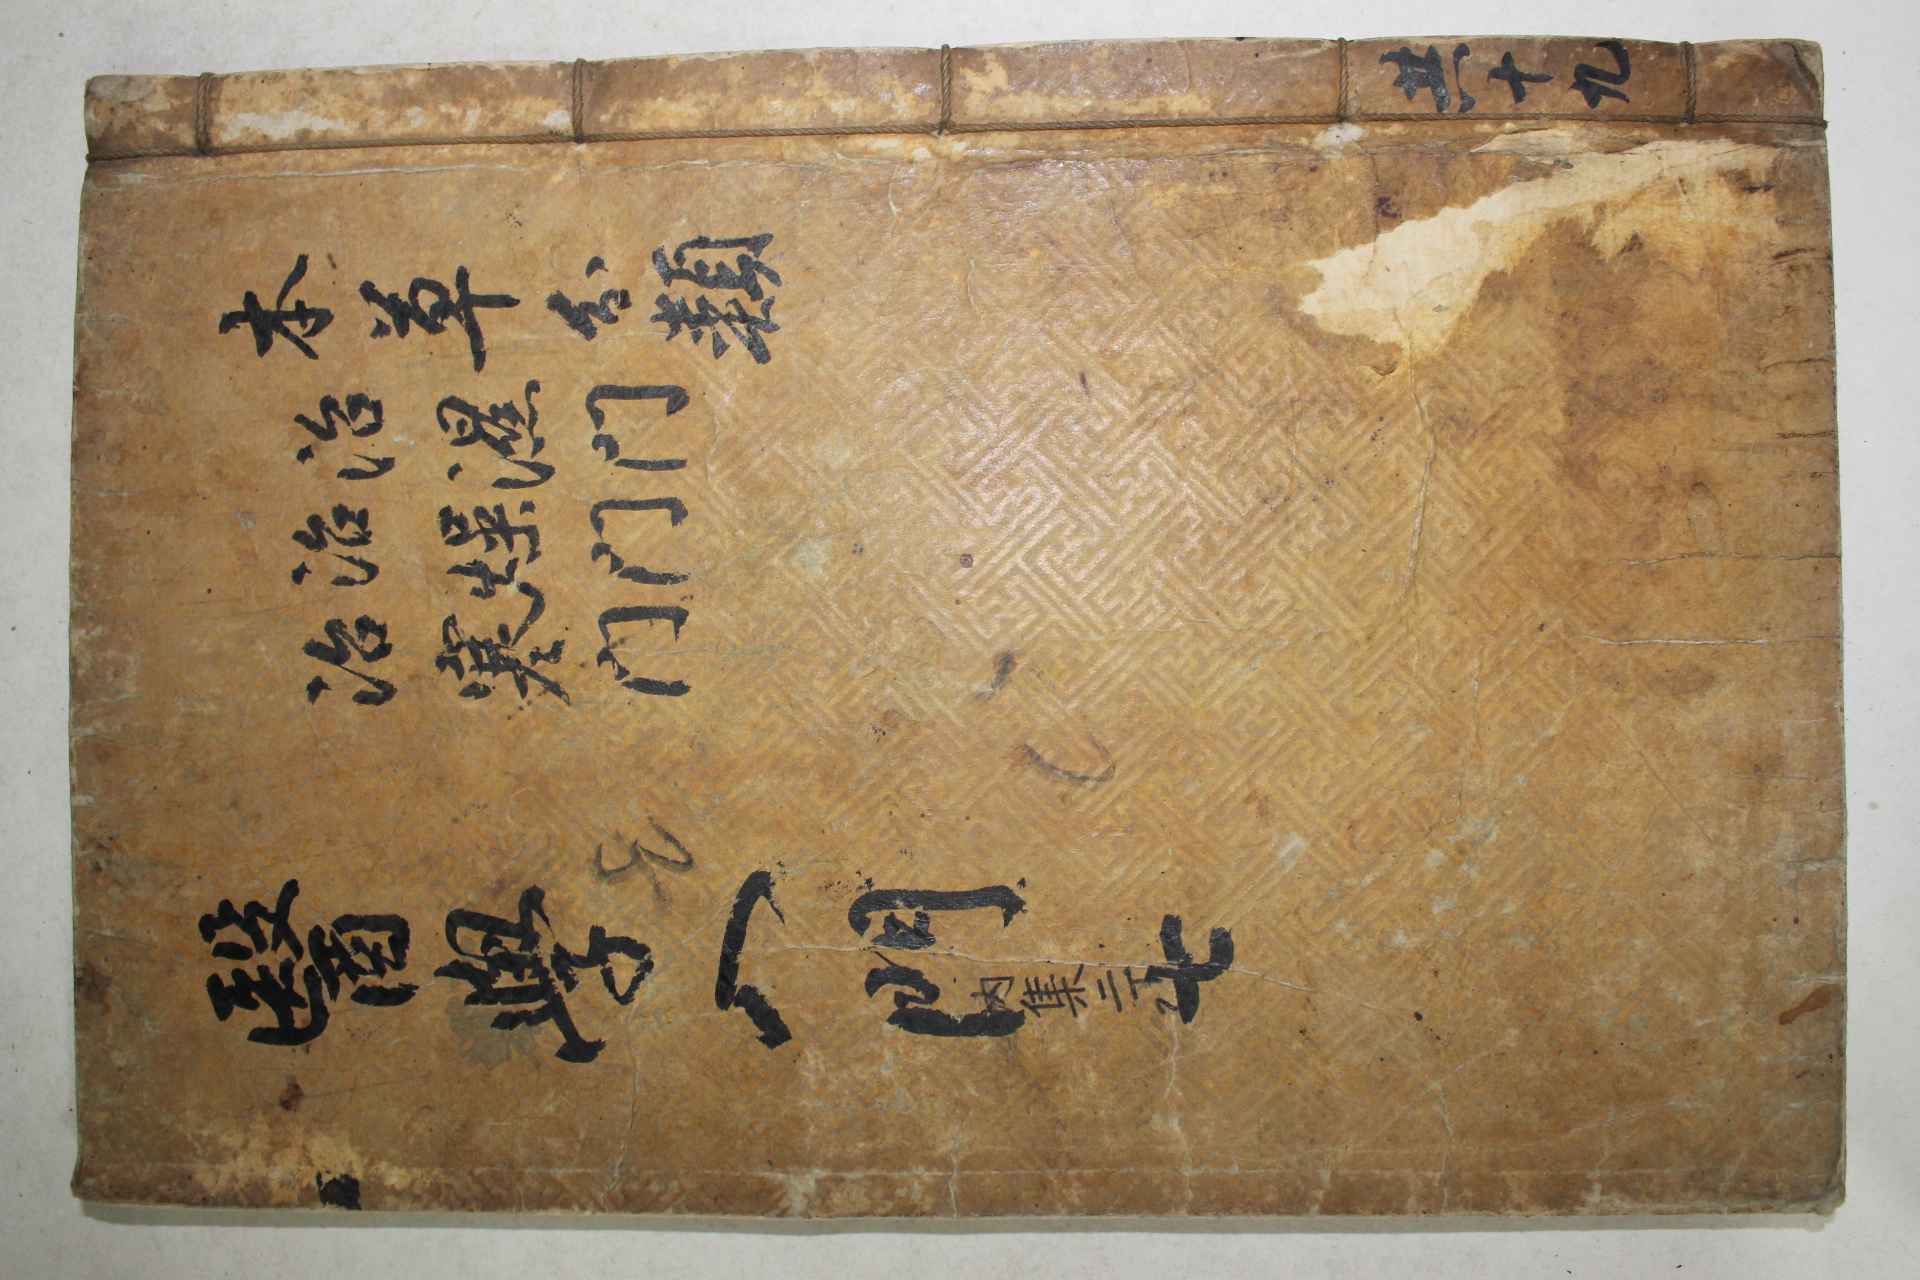 共十九
本草分類
治濕門
治燥門
治寒門
醫學入門 七
內集二